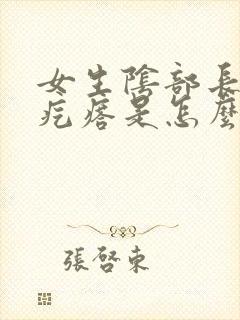 女生陰部長
疙瘩是怎麼
張啓東